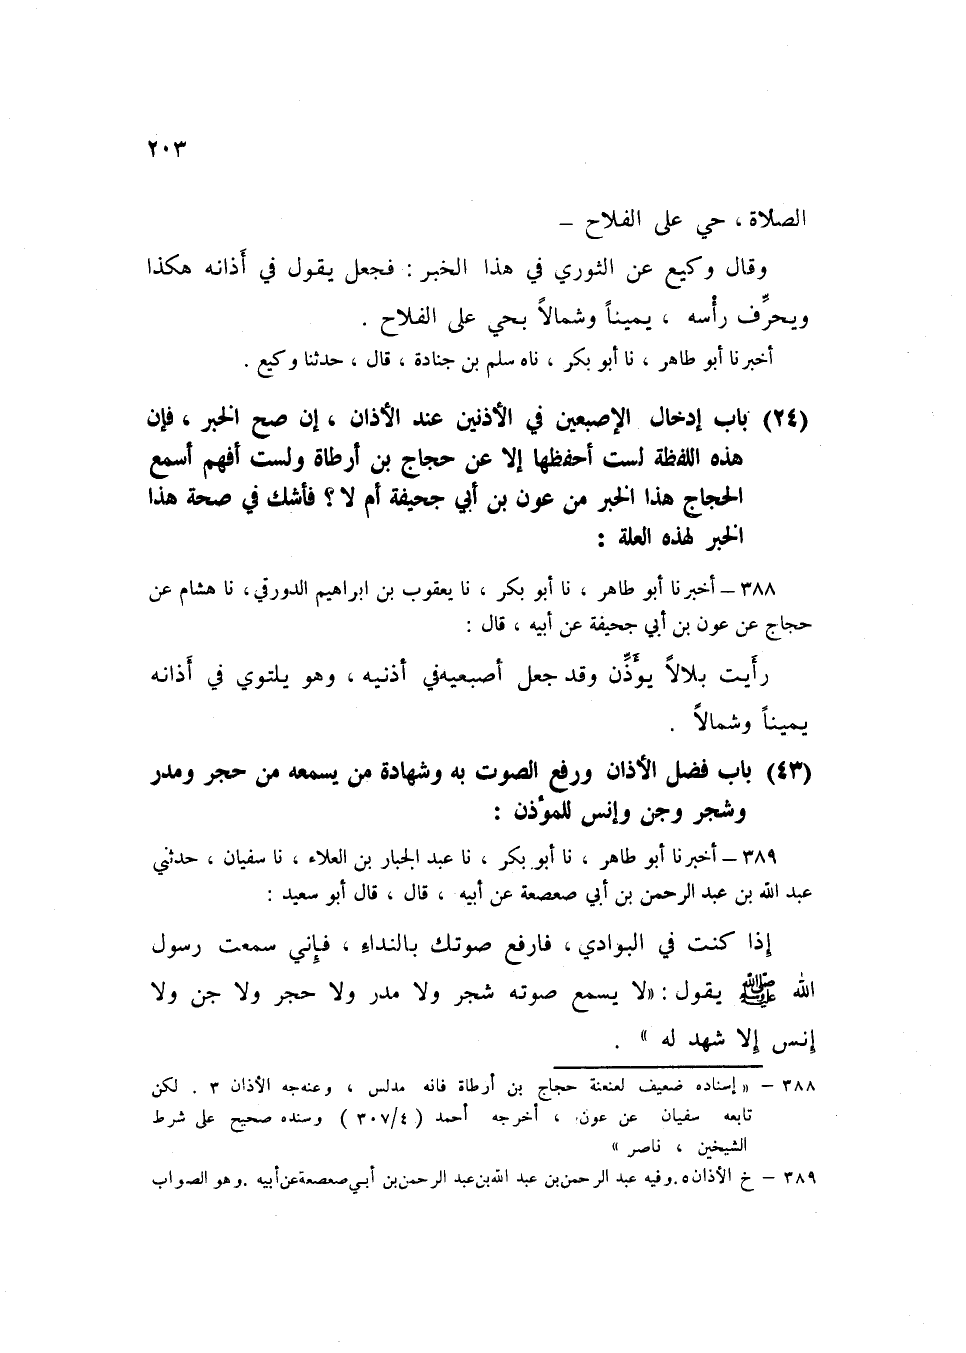 ٢٠٣
الصلاة ، حي على الفلاح –
وقال وكيع عن الثوري في هذا الخبر : فجعل يقول في أَذانه هكذا
ويحرِّف رأْسه ، يميناً وشمالاً بحي على الفلاح .
أخبرنا أبو طاهر ، نا أبو بكر ، ناه سلم بن جنادة ، قال ، حدثنا وكيع .
(٢٤) باب إدخال الإصبعين في الأذنين عند الأذان ، إن صح الخبر ، فإن
هذه اللفظة لست أحفظها إلا عن حجاج بن أرطاة ولست أفهم أسمع
الحجاج هذا الخبر من عون بن أبي جحيفة أم لا ؟ فأشك في صحة هذا
الخبر لهذه العلة :
٣٨٨ – أخبرنا أبو طاهر ، نا أبو بكر ، نا يعقوب بن ابراهيم الدورقي، نا هشام عن
حجاج عن عون بن أبي جحيفة عن أبيه ، قال :
رأَيت بلالاً يؤَذِّن وقد جعل أصبعيه في أذنيه ، وهو يلتوي في أَذانه
يميناً وشمالاً .
(٤٣) باب فضل الأذان ورفع الصوت به وشهادة من يسمعه من حجر ومدر
وشجر وجن وإنس للمؤذن :
٣٨٩ – أخبرنا أبو طاهر ، نا أبو بكر ، نا عبد الجبار بن العلاء ، نا سفيان ، حدثني
عبد الله بن عبد الرحمن بن أبي صعصعة عن أبيه ، قال ، قال أبو سعيد :
إذا كنت في البوادي، فارفع صوتك بالنداءِ ، فإِني سمعت رسول
الله ﷺ يقول : «لا يسمع صوته شجر ولا مدر ولا حجر ولا جن ولا
إِنس إِلا شهد له » .
٣٨٨ – « إسناده ضعيف لعنعنة حجاج بن أرطاة فانه مدلس ، وعنه جه الأذان ٣ . لكن
تابعه سفيان عن عون ، أخرجه أحمد ( ٣٠٧/٤ ) وسنده صحيح على شرط
الشيخين ، ناصر »
٣٨٩ – خ الأذان ٥. وفيه عبد الرحمن بن عبد الله بن عبد الرحمن بن أبي صعصعة عن أبيه . وهو الصواب